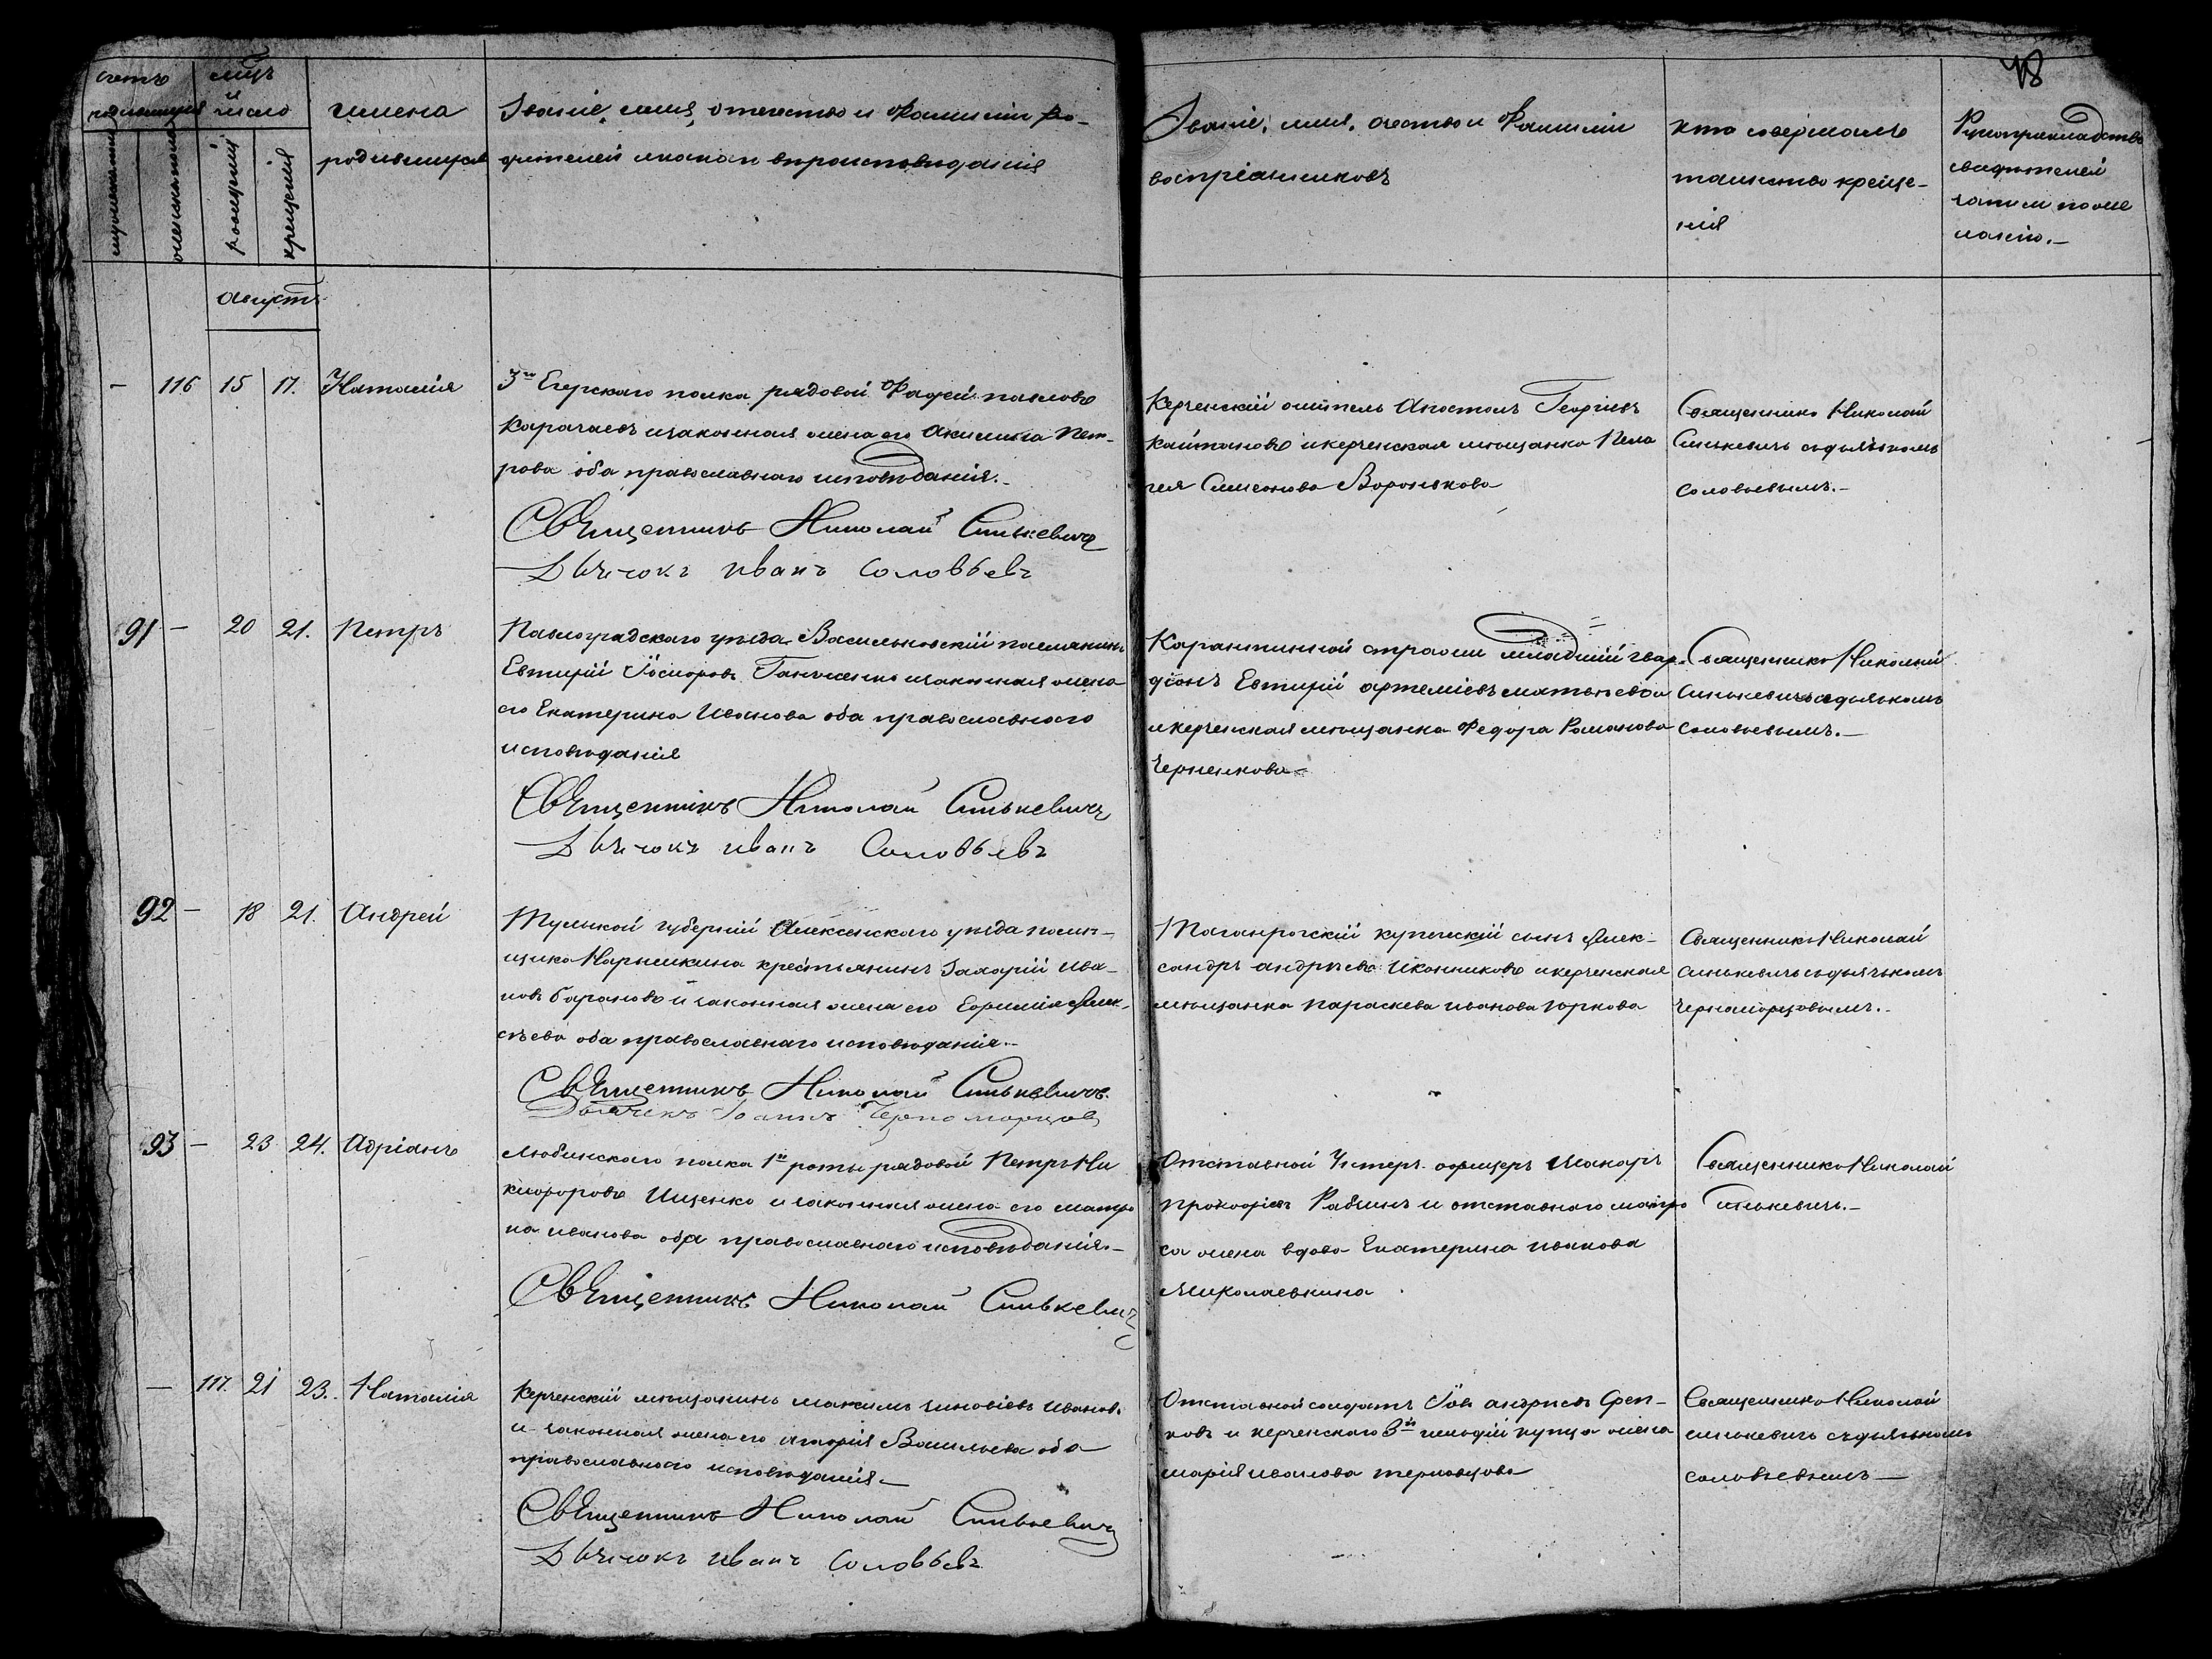 48
счетъ
родившихся
мужеска пола
женска пола
мцъ
и
число
рожденія
крещенія
имена
родившихся
Званіе, имя, отечество и Фамиліи Ро-
дителей и какаго вѣроисповѣданія
Званіе, имя, очество и Фамиліи
воспріемниковъ
кто совершалъ
таинство креще-
нія
Рукоприкладство
свидѣтелей
записи по же
ланію.-
Августъ
- 116 15 17. Наталія
3го Егерскаго полка рядовой Фадей павловъ
Карачаевъ изаконная жена его Акилина Пет-
рова оба православнаго исповѣданія.-
Священникъ Николай Синькевичъ
Дьячокъ иванъ Соловьевъ
Керченскій житель Апостолъ Георгіевъ
Кайтановъ икерченская мѣщанка Пела
гея Симеонова Воронькова
Священникъ Николай
Синькевичъ съдьячькомъ
Соловьевымъ.-
91 - 20 21. Петръ
Павлоградскаго уѣзда Васильковскій поселянинъ
Евтихій Ѳеодоровъ изаконная жена
его Екатерина Иванова оба православнаго
исповѣданія
Священникъ Николай Синькевичъ
Дьячокъ иванъ Соловьевъ
Карантинной стражи младшій гвар-
діонъ Евтихій артеміевъ матвѣевъ
икерченская мѣщанка Федора Романова
Черненкова-
Священникъ Николай
Синькевичъ съдьячькомъ
Соловьевымъ.-
92 - 18 21. Андрей
Тульской губерніи Алексинскаго уѣзда помѣ-
щика Нарышкина крестьянинъ Захарій Ива-
новъ барановъ и законная жена его Ефимія Алек-
сѣева оба православнаго исповѣданія.-
Священникъ Николай Синькевичъ.
Дьячекъ Іоаннъ Черноморцовъ
Таганрогскій купеческій сынъ Алек-
сандръ андрѣевъ Иконниковъ икерченская
мѣщанка параскева иванова юркова
Священникъ Николай
Синькевичъ съдьячькомъ
Черноморцовымъ.-
93 - 23 24. Адріанъ
Люблинскаго полка 1й роты рядовой Петръ Ни
кифоровъ Ищенко и законная жена его матро
на иванова оба православнаго исповѣданія.-
Священникъ Николай Синькевичъ
Отставной Унтеръ офицеръ Макаръ
прокофіевъ Рабинъ и отставнаго матро
са жена вдова Екатерина иванова
Миколаевкина
Священникъ Николай
Синькевичъ.-
- 117. 21 23. Наталія
Керченскій мѣщанинъ Максимъ зиновіевъ Ивановъ
и законная жена его марія Васильева оба
православнаго исповѣданія-
Священникъ Николай Синькевичъ
Дьячокъ иванъ Соловьевъ
Отставной солдатъ Іовъ андрѣевъ
и керченскаго 3й гильдіи купца жена
марія иванова
Священникъ Николай
синькевичъ съдьячькомъ
соловьевымъ-